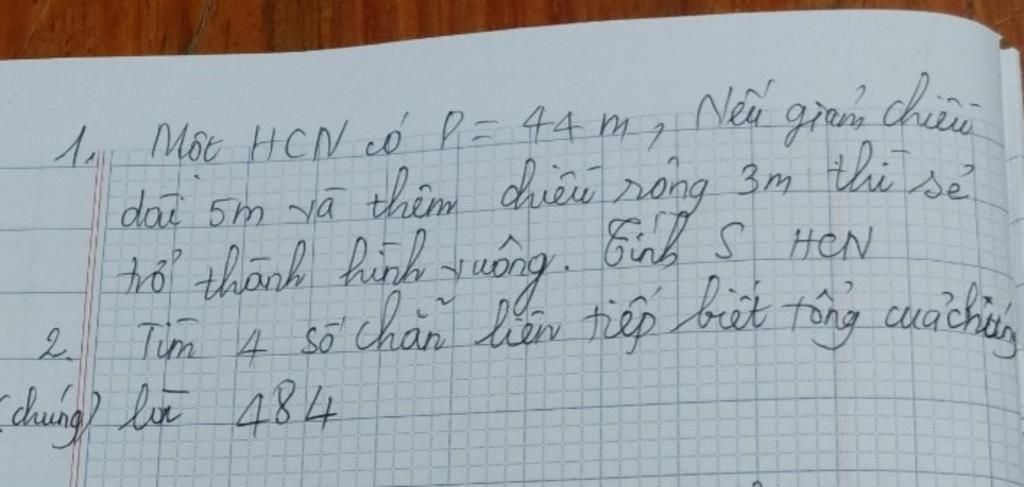 1. Một HCN có P = 44 m, Nếu giảm chiều
dài 5m và thêm chiều rông 3m thì sẻ
trở thành hình vuông. Tính S HCN
2. Tìm 4 số chẵn liên tiếp biết tổng của chúng
(chúng) là 484